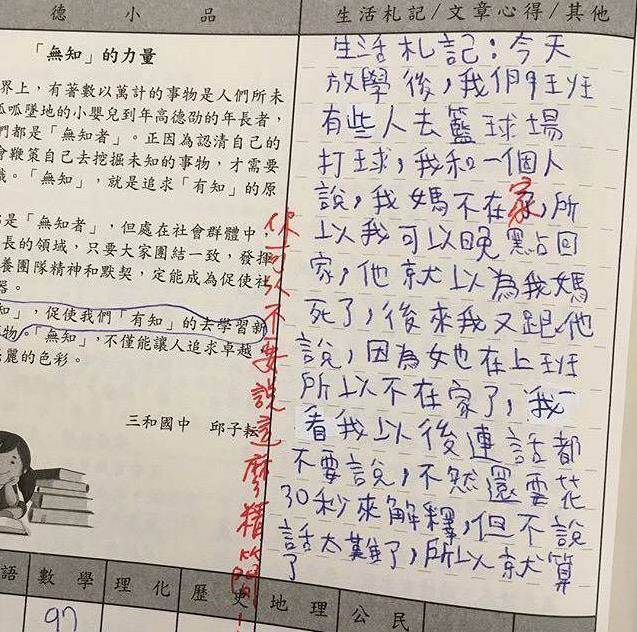 德 小 品
「無知」的力量
界上，有著數以萬計的事物是人們所未
呱墜地的小嬰兒到年高德劭的年長者，
們都是「無知者」。正因為認清自己的
會鞭策自己去挖掘未知的事物，才需要
識。「無知」，就是追求「有知」的原
是「無知者」，但處在社會群體中，
長的領域，只要大家團結一致，發揮
養團隊精神和默契，定能成為促使社
器。
知」，促使我們「有知」的去學習新
物。「無知」，不僅能讓人追求卓越
麗的色彩。
三和國中 邱子耘
你可以不要說這麼精簡!
生活札記/文章心得/其他
生活札記：今天
放學後，我們班
有些人去籃球場
打球，我和一個人
說，我媽不在家，所
以我可以晚點回
家，他就以為我媽
死了，後來我又跟他
說，因為她在上班
所以不在家了，我
看我以後連話都
不要說，不然還要花
30秒來解釋，但不說
話太難了，所以就算
了
語 數學 理化 歷史 地理 公民
97